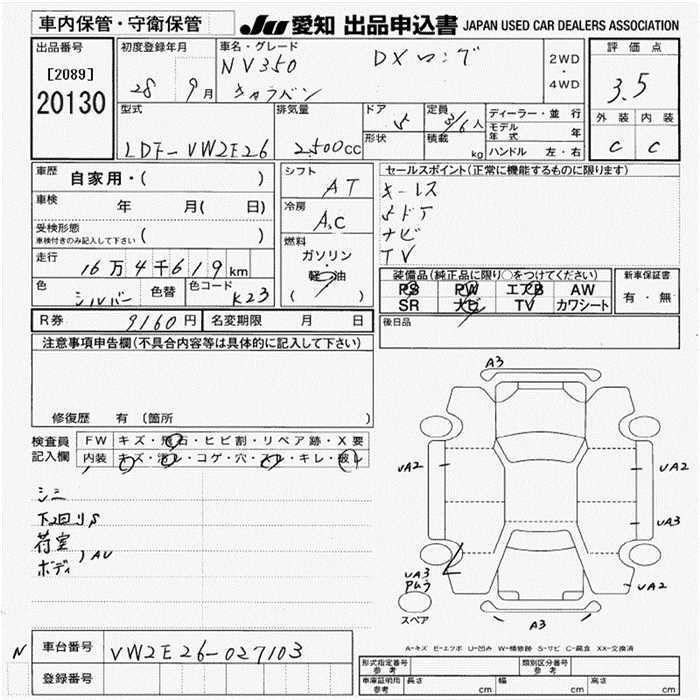 車内保管・守衛保管
JU 愛知 出品申込書 JAPAN USED CAR DEALERS ASSOCIATION
出品番号
[2089]
20130
初度登録年月
28 9月
車名・グレード
NV350 DX ロング
キャラバン
2WD
・
4WD
評価点
3.5
外装 内装
C C
型式
LDF-VW2E26
排気量
2,500cc
ドア
5
形状
定員
3/6人
積載
kg
ディーラー・並行
モデル年式 年
ハンドル 左・右
車歴
自家用・( )
車検 年 月( 日)
受検形態
車検付きのみ記入して下さい ( )
走行
16万4千619km
色
シルバー
色替
色コード
K23
シフト
AT
冷房
A.C
燃料
ガソリン
・
軽油
( )
セールスポイント(正常に機能するものに限ります)
キーレス
5ドア
ナビ
TV
装備品(純正品に限り○をつけてください)
PS PW エアB AW
SR ナビ TV カワシート
新車保証書
有・無
後日品
R券 9160円 名変期限 月 日
注意事項申告欄(不具合内容等は具体的に記入して下さい)
修復歴 有 (箇所 )
検査員
記入欄
FW キズ・飛石・ヒビ割・リペア跡・X要
内装 キズ・汚レ・コゲ・穴・スレ・キレ・破レ
シミ
下回りS
荷室
ボディ
AU
A3
UA2
UA2
UA3
UA3
UA2
A3
スペア
A-キズ E-エクボ U-凹み W-補修跡 S-サビ C-腐食 XX-交換済
N
車台番号 VW2E26-027103
登録番号
型式指定番号
参考
類別区分番号
参考
車庫証明用
参考
長さ cm 幅 cm 高さ cm